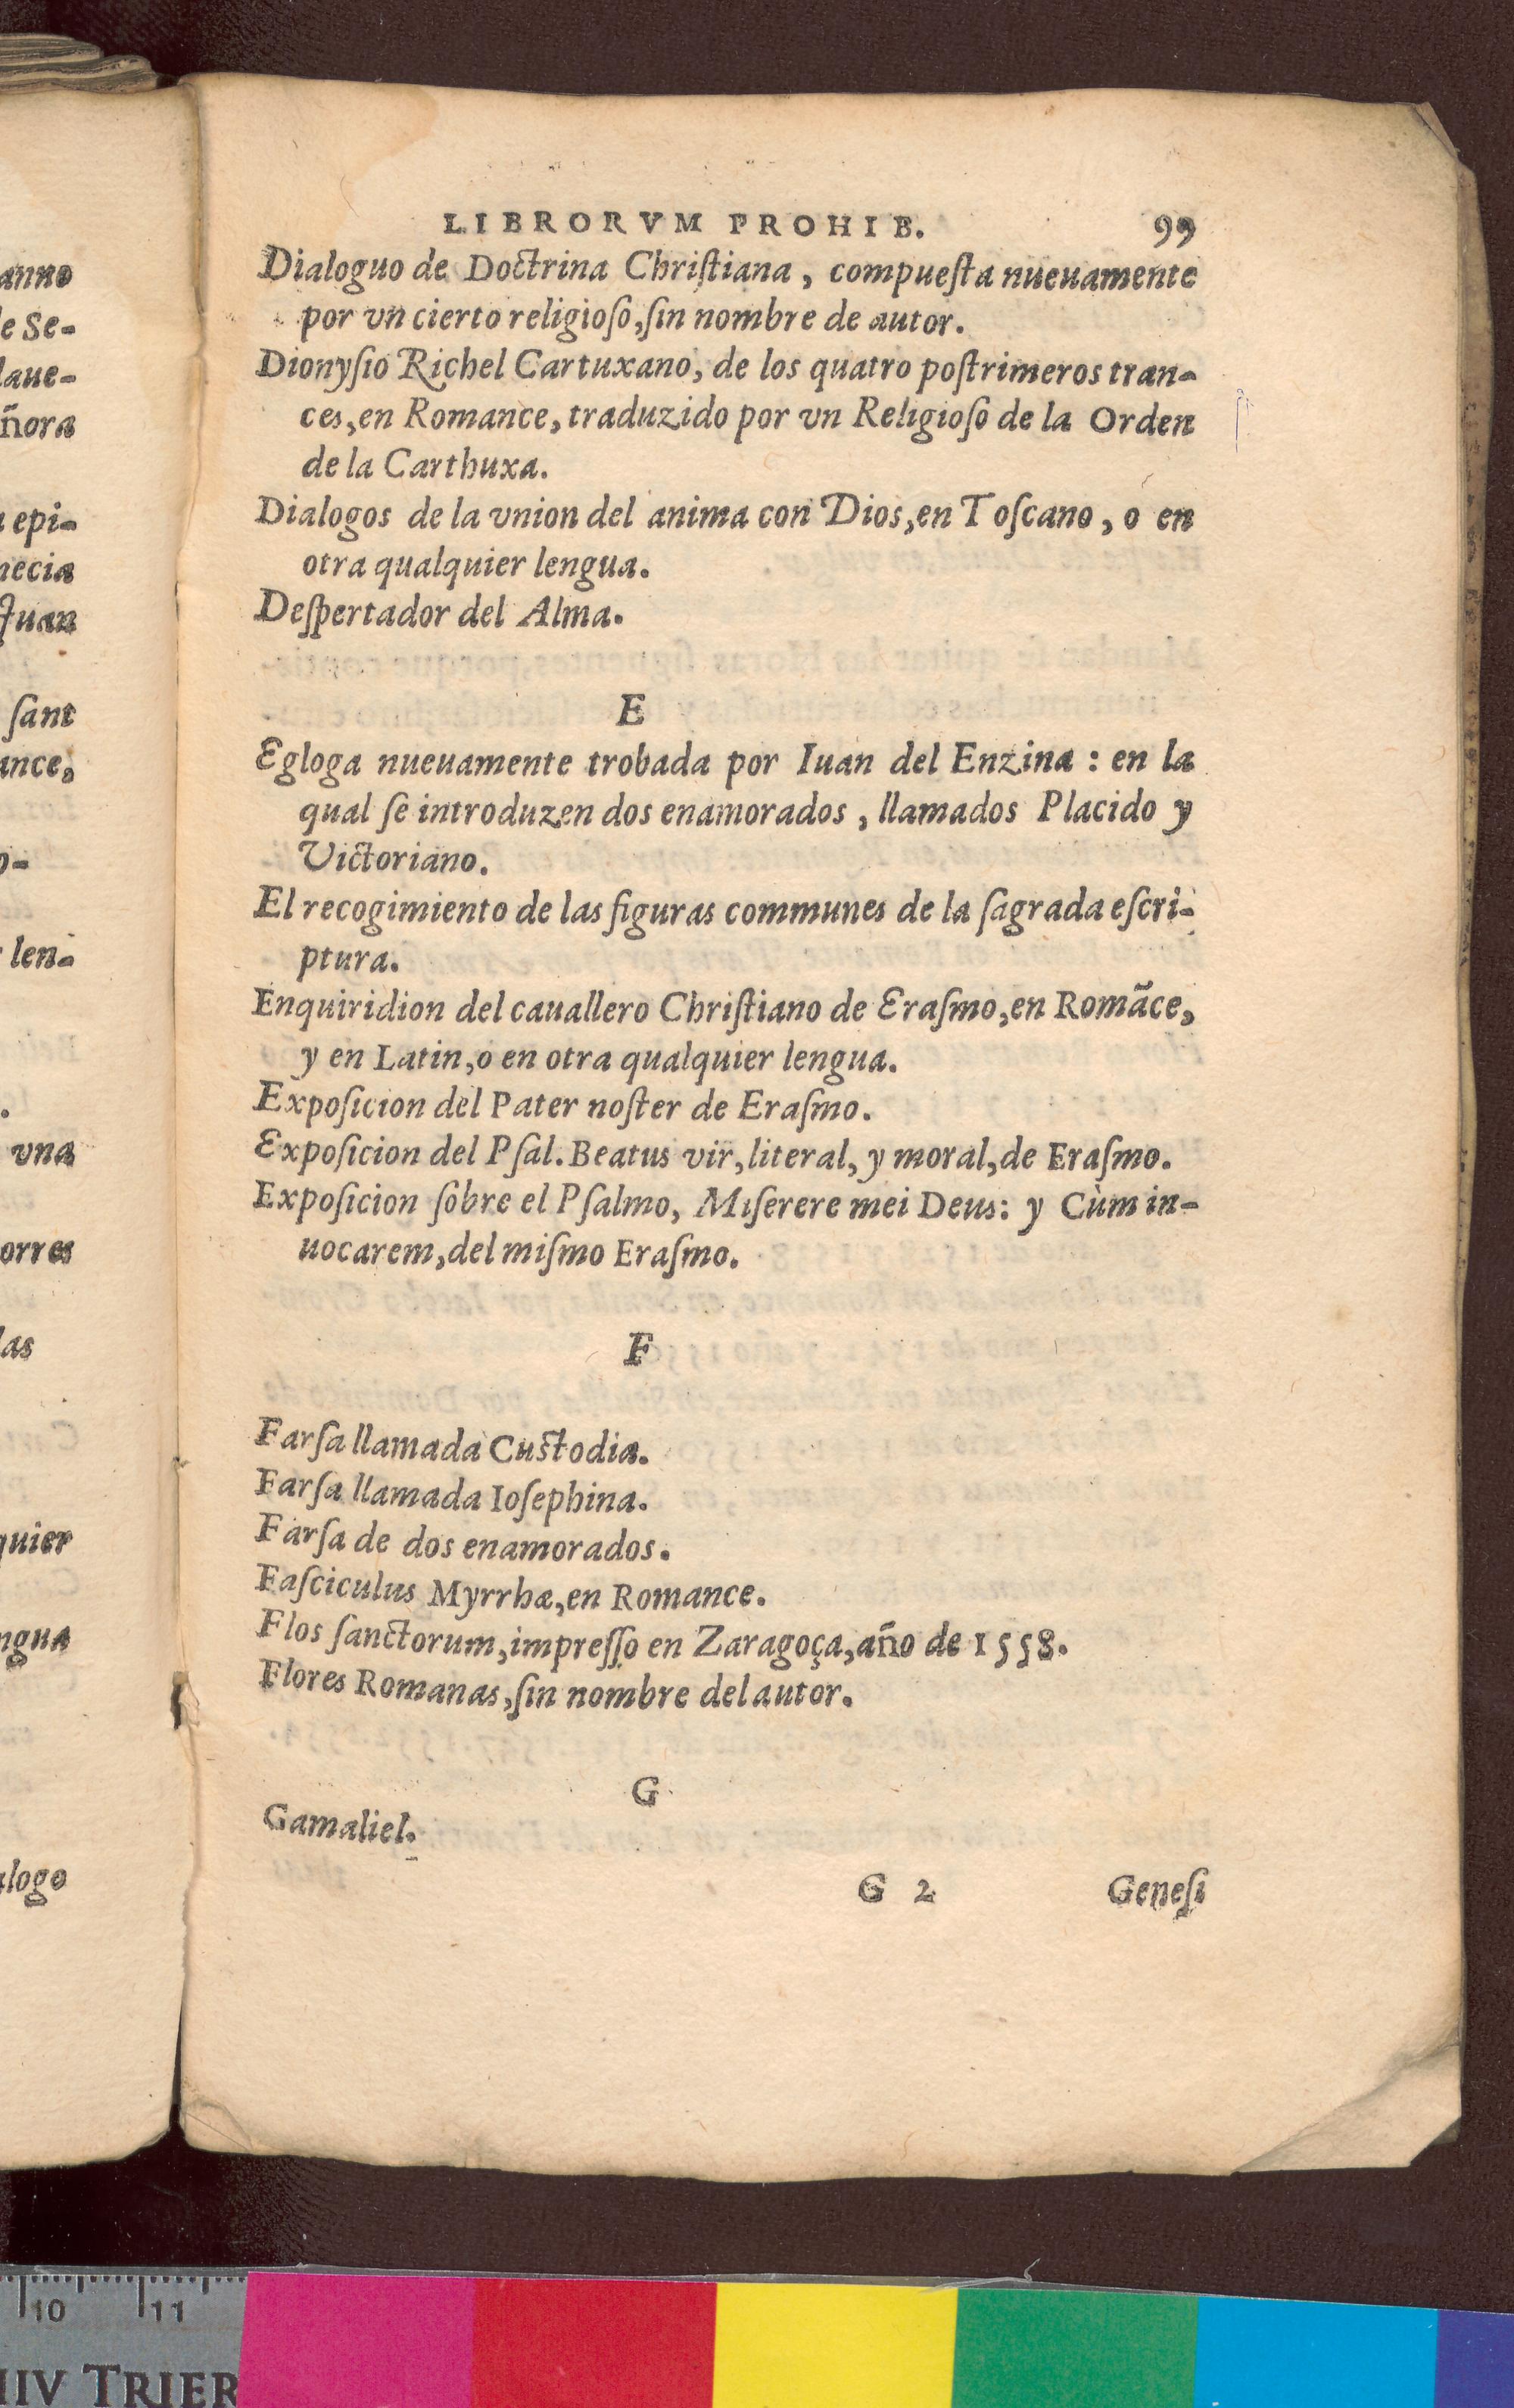 LIBRORVM PROHIB. 99
Dialoguo de Doctrina Chriſtiana, compueſta nueuamente
por vn cierto religioſo, ſin nombre de autor.
Dionyſio Richel Cartuxano, de los quatro poſtrimeros tran-
ces, en Romance, traduzido por vn Religioſo de la Orden
de la Carthuxa.
Dialogos de la vnion del anima con Dios, en Toſcano, o en
otra qualquier lengua.
Deſpertador del Alma.
E
Egloga nueuamente trobada por Iuan del Enzina : en la
qual ſe introduzen dos enamorados, llamados Placido y
Victoriano.
El recogimiento de las figuras communes de la ſagrada eſcri-
ptura.
Enquiridion del cauallero Chriſtiano de Eraſmo, en Romãce,
y en Latin, o en otra qualquier lengua.
Expoſicion del Pater noſter de Eraſmo.
Expoſicion del Pſal. Beatus vir, literal, y moral, de Eraſmo.
Expoſicion ſobre el Pſalmo, Miſerere mei Deus: y Cùm in-
uocarem, del miſmo Eraſmo.
F
Farſa llamada Cuſtodia.
Farſa llamada Ioſephina.
Farſa de dos enamorados.
Faſciculus Myrrhæ, en Romance.
Flos ſanctorum, impreſſo en Zaragoça, año de 1558.
Flores Romanas, ſin nombre del autor.
G
Gamaliel.
G 2 Geneſi
anno
le Se-
laue-
ñora
epi-
necia
Juan
ſant
ance,
o-
len-
vna
orres
las
quier
ngua
alogo
10 11
HIV TRIER